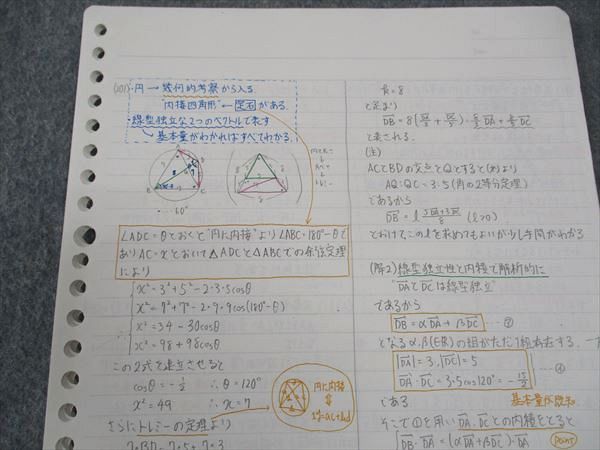 (201)・円→幾何的考察から入る
"内接四角形"←定石がある.
・線型独立な2つのベクトルで表す
基本量がわかればすべてわかる.
A
B
C
D
60°
∠ADC=θとおくと"円に内接"より∠ABC=180°-θで
ありAC=xとおいて△ADCと△ABCでの余弦定理
により
x²=3²+5²-2・3・5cosθ
x²=7²+7²-2・7・7cos(180°-θ)
∴
x²=34-30cosθ
x²=98+98cosθ
この2式を連立させると
cosθ=-1/2 ∴θ=120°
x²=49 ∴x=7
円に内接
さらにトレミーの定理より
7・BD=7・5+7・3
k=8
と定まり
DB=8(
と表される.
(注)
ACとBDの交点をQとすると(※)より
AQ:QC=3:5(角の2等分定理)
であるから
(l>0)
とおけて、このlを求めてもよいが少し手間がかかる
(解2)線型独立性と内積で解析的に
"DAとDCは線型独立"
であるから
DB=αDA+βDC …②
となるα,β(∈R)の組がただ1組存在する.
|DA|=3,|DC|=5
DA・DC=3・5cos120°=-15/2
である 基本量が既知
そこで①を用いDA,DCとの内積をとると
DB・DA=(αDA+βDC)・DA
Point